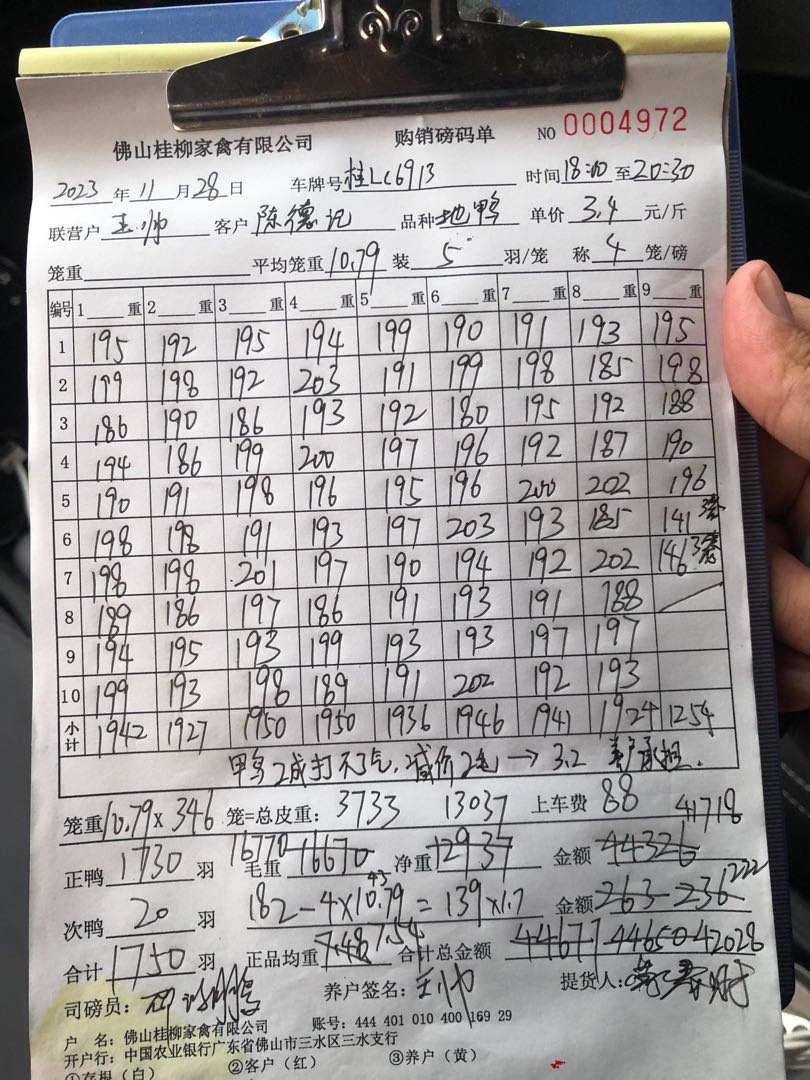 佛山桂柳家禽有限公司 购销磅码单 NO 0004972
2023 年 11 月 28 日 车牌号 桂LC6913 时间 18:00 至 20:30
联营户 王帅 客户 陈德记 品种 地鸭 单价 3.4 元/斤
笼重 平均笼重 10.79 装 5 羽/笼 称 4 笼/磅
编号 1 重 2 重 3 重 4 重 5 重 6 重 7 重 8 重 9 重
1 195 192 195 194 199 190 191 193 195
2 199 198 192 203 191 199 198 185 198
3 186 190 186 193 192 180 195 192 188
4 194 186 199 200 197 196 192 187 190
5 190 191 198 196 195 196 200 202 196
6 198 198 191 193 197 203 193 185 141 3笼
7 198 198 201 197 190 194 192 202 146 3笼
8 189 186 197 186 191 193 191 188
9 194 195 193 199 193 193 197 197
10 199 193 198 189 191 202 192 193
小计 1942 1927 1950 1950 1936 1946 1941 1924 1254
鸭2成打不了气,减价2毛→3.2 养户承担.
笼重 10.79×346 笼=总皮重: 3733 13037 上车费 88 41718
正鸭 1730 羽 16770 毛重 16670 净重 12937 金额 44326
次鸭 20 羽 182-4×10.79 43 =139×1.7 金额 263 236 222
合计 1750 羽 正品均重 7.48 7.54 合计总金额 44677 44650 42028
司磅员: 养户签名: 王帅 提货人:
户 名: 佛山桂柳家禽有限公司 账号: 444 401 010 400 169 29
开户行: 中国农业银行广东省佛山市三水区三水支行
①存根(白) ②客户(红) ③养户(黄)